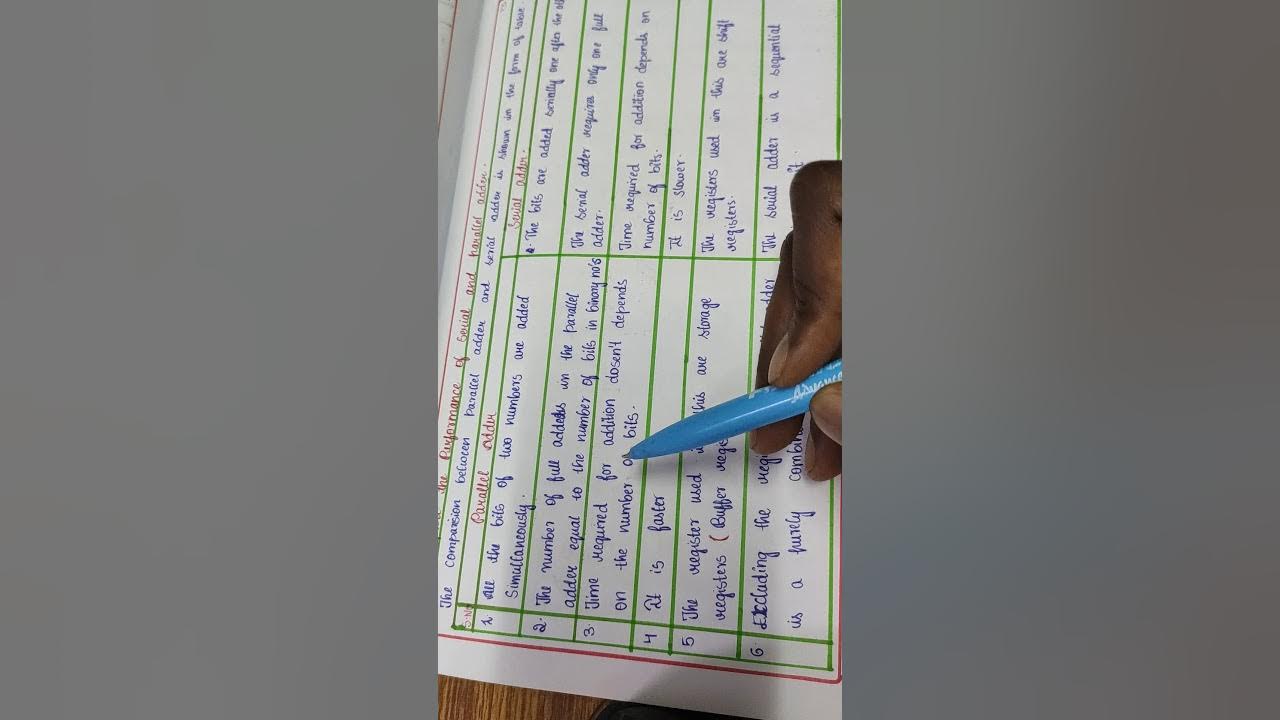 the Performance of serial and parallel adder.
The comparsion between parallel adder and serial adder is shown in the form of table.
S.No
Parallel adder
Serial adder.
1. All the bits of two numbers are added
Simultaneously.
The bits are added serially one after the
2. The number of full adders in the parallel
adder equal to the number of bits in binary no's
The serial adder requires only one full
adder.
3. Time required for addition dosen't depends
on the number of bits.
Time required for addition depends on
number of bits.
4 It is faster
It is slower.
5 The register used this are storage
registers (Buffer
The registers used in this are shift
registers.
6. Excluding the adder
is a purely
The serial adder is a sequential